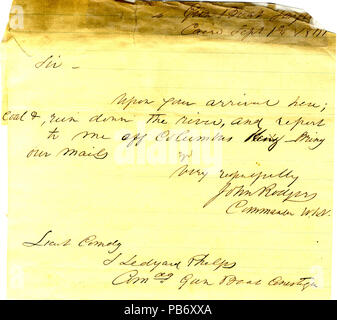 Gun Boat
Cairo Sept 12
Sir -
Upon your arrival here;
Coal &, run down the river, and report
to me off Columbus Bring
our mails
Very respectfully
John Rodgers
Commander USN.
Lieut Comdg
S Ledyard Phelps
Comdg Gun Boat Conestoga
alamy
Image ID: PB6XXA
www.alamy.com